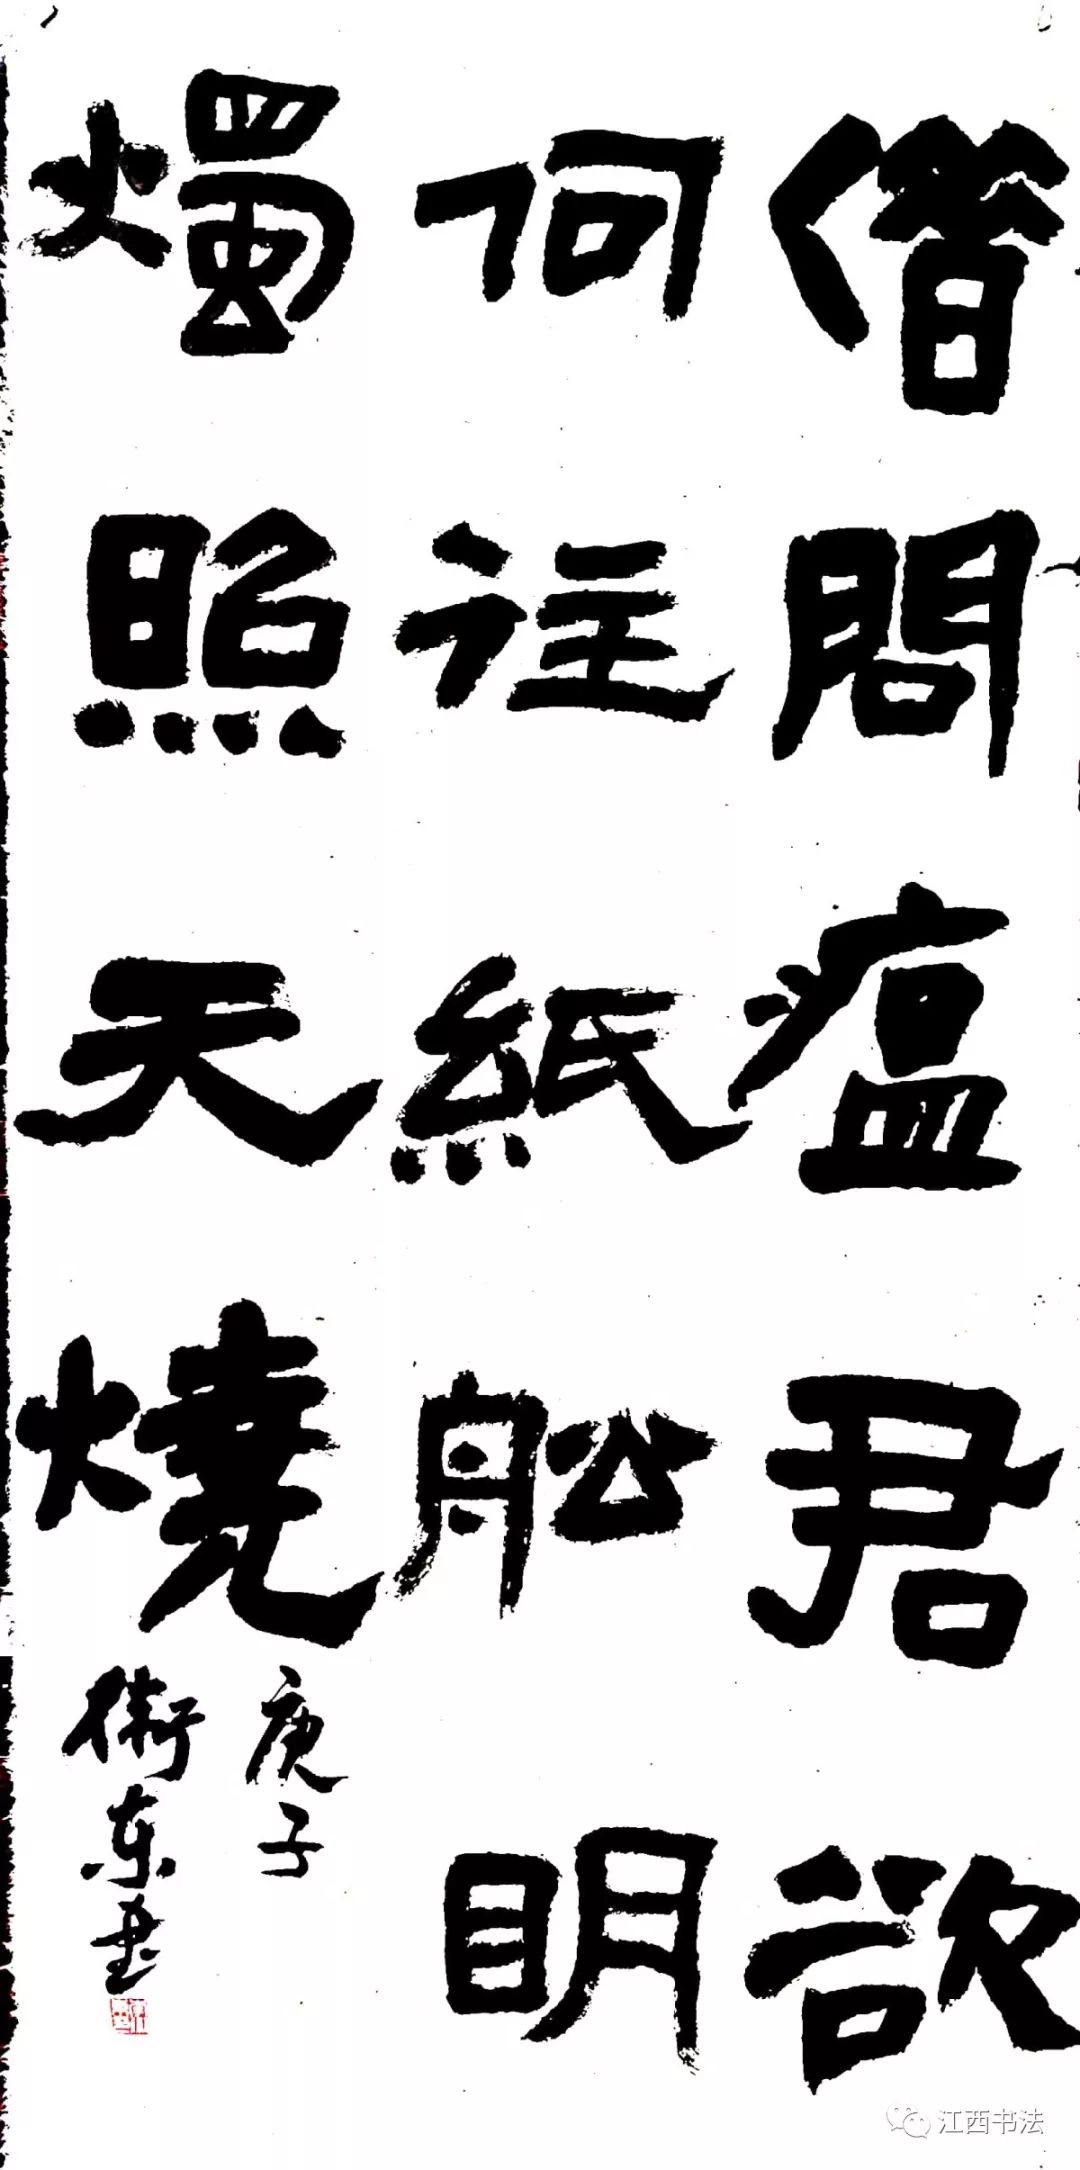 借問瘟君欲
何往紙船明
燭照天燒
庚子
衛东书
江西书法